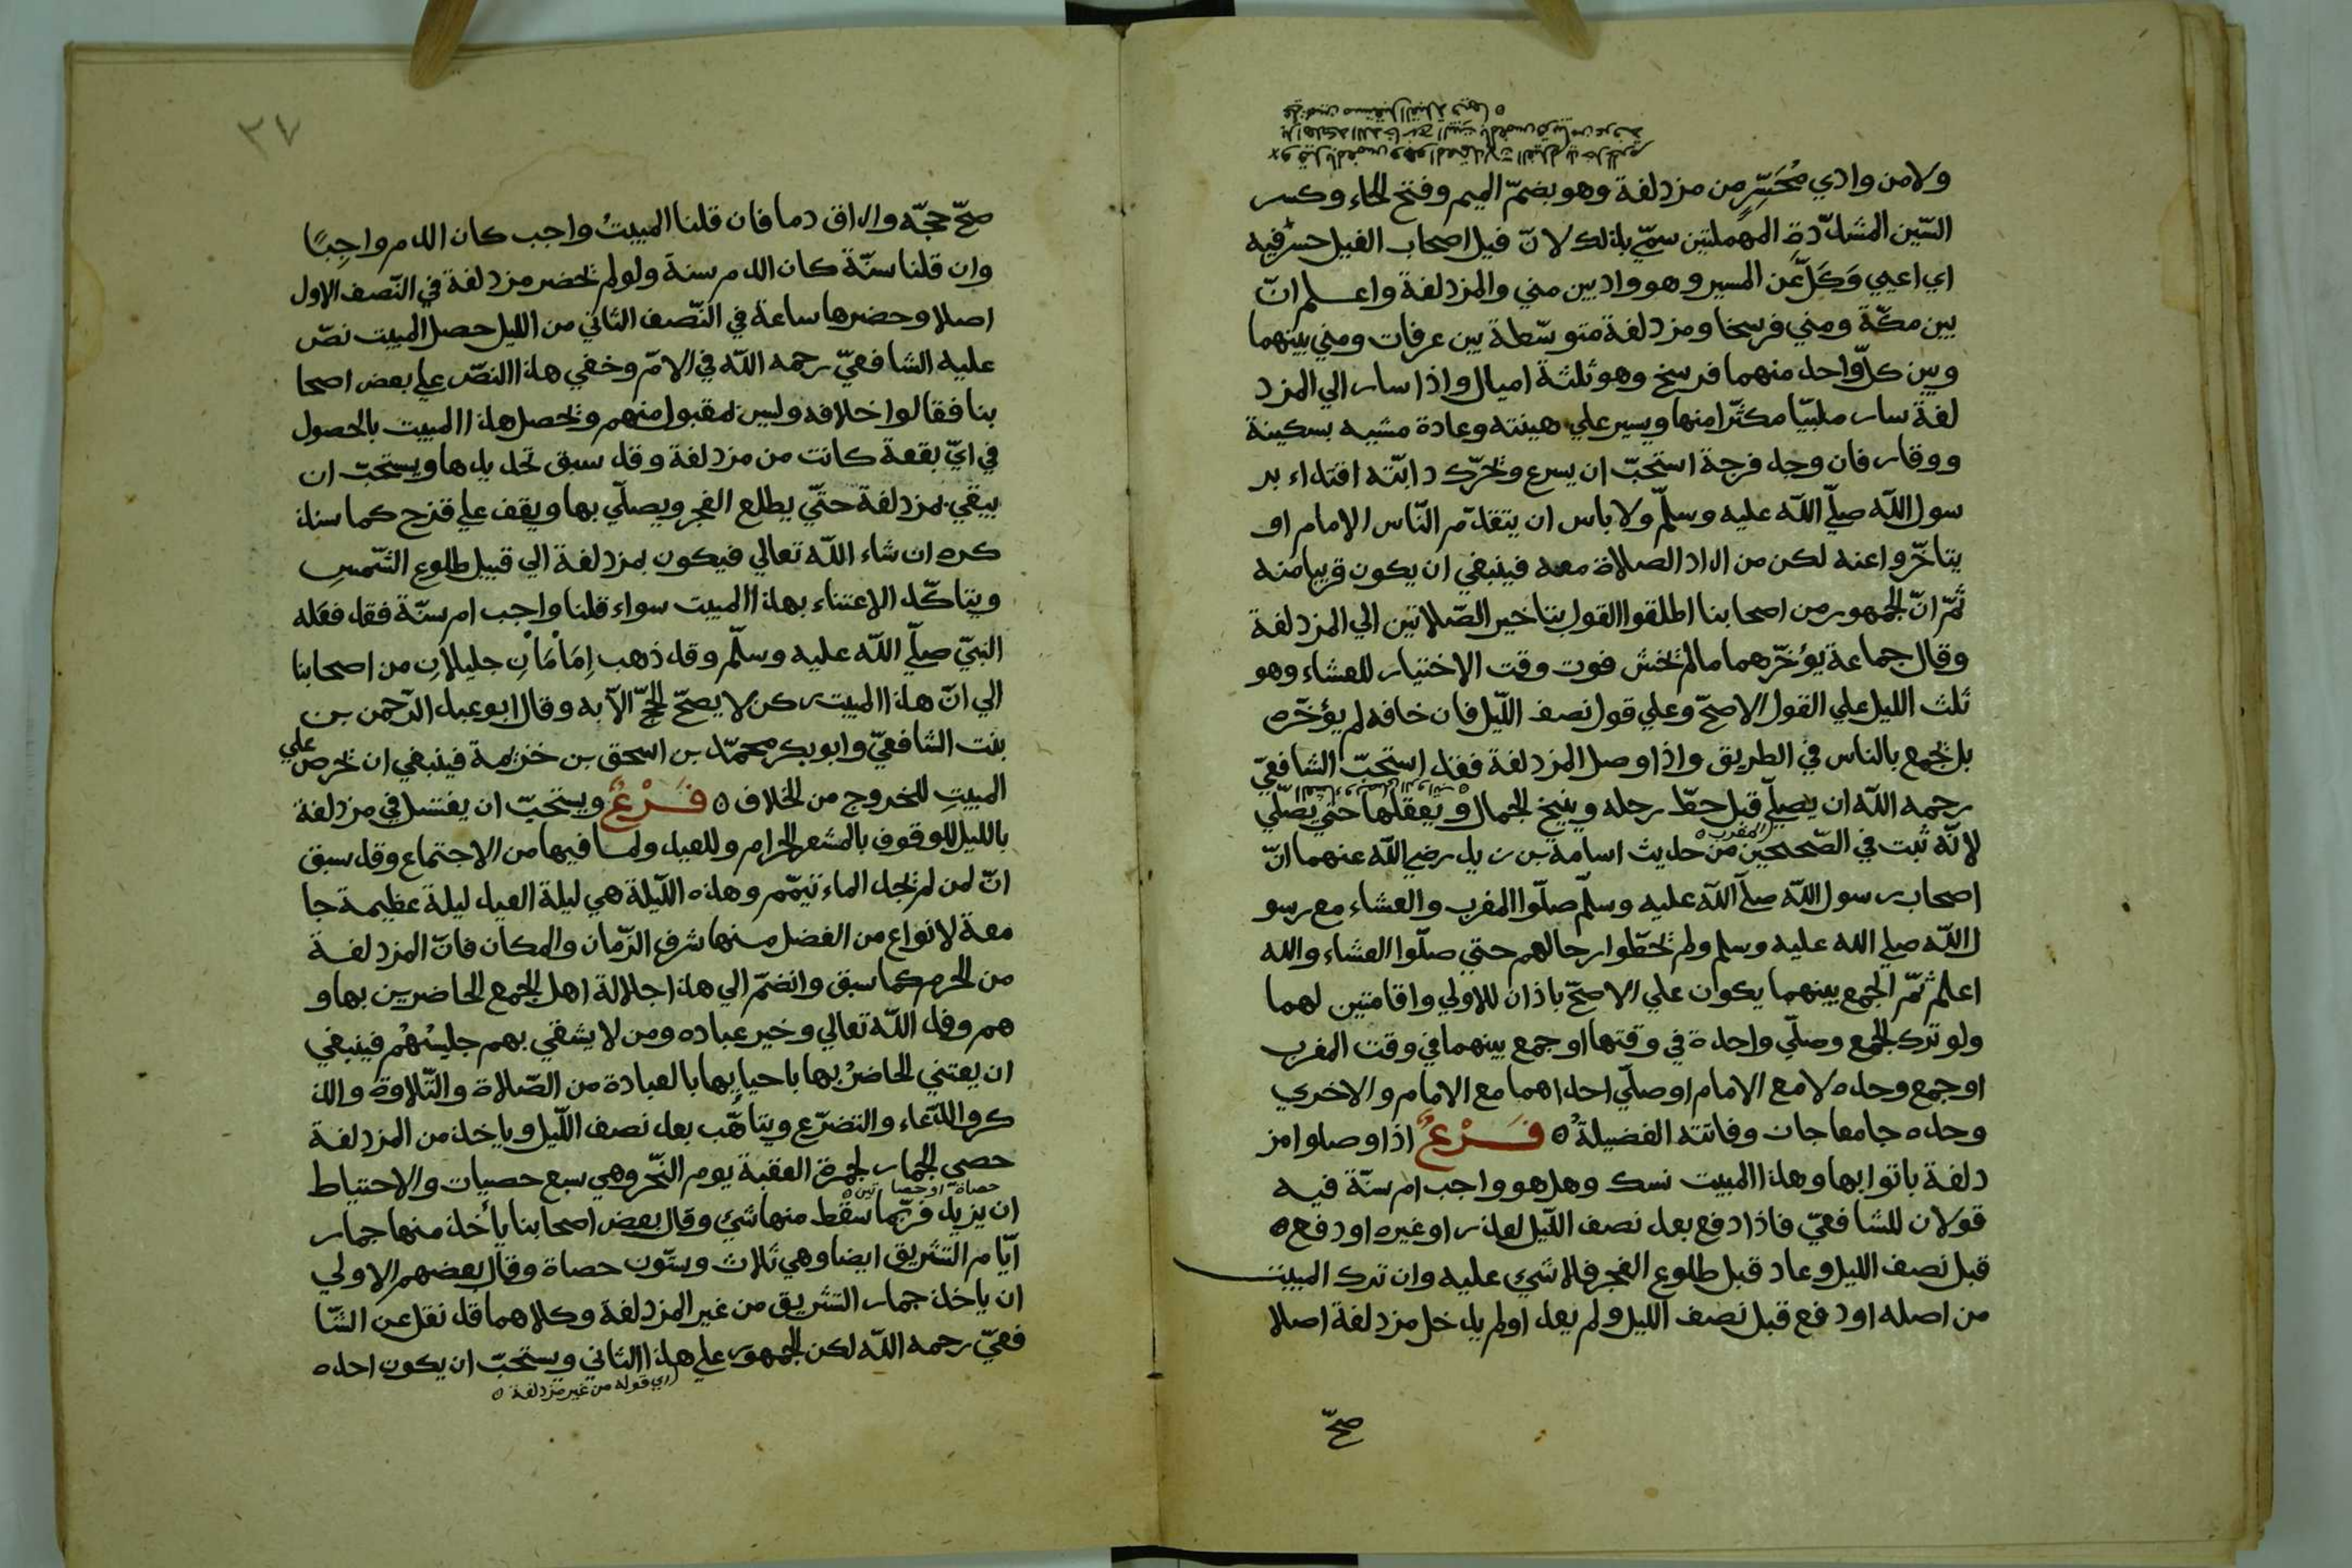 ولا من وادي مُحَسِّرٍ من مزدلفة وهو بضمّ الميم وفتح الحاء وكسر
السّين المشدّدة المهملتين سمّي بذلك لانّ فيل اصحاب الفيل حسر فيه
اي اعيي وَكَلَّ عَن المسير وهو واد بين مني والمزدلفة واعلم انّ
بين مكّة ومني فرسخا ومزدلفة متوسّطة بين عرفات ومني بينهما
وبين كلّ واحد منهما فرسخ وهو ثلثة اميال واذا سار الي المزد
لفة سار ملبيّا مكثّرا منها ويسير علي هينته وعادة مشيه بسكينة
ووقار فان وجد فرجة استحبّ ان يسرع ويحرّك دابّته اقتداء بر
سول اللّه صلّي اللّه عليه وسلّم ولا باس ان يتقدّم النّاس الامام او
يتاخّروا عنه لكن من اراد الصلاة معه فينبغي ان يكون قريبا منه
ثمّ انّ الجمهور من اصحابنا اطلقوا القول بتاخير الصّلاتين الي المزدلفة
وقال جماعة يؤخّرهما ما لم يخش فوت وقت الاختيار للعشاء وهو
ثلث الليل علي القول الاصحّ وعلي قول نصف اللّيل فان خافه لم يؤخّره
بل يجمع بالناس في الطريق واذا وصل المزدلفة فقد استحبّ الشافعيّ
رحمه اللّه ان يصلّي قبل حطّ رحله وينيخ الجمال ويعقلها حتي يصلّي
المغرب
لانّه ثبت في الصّحيحين من حديث اسامة بن زيد رضي اللّه عنهما انّ
اصحاب رسول اللّه صلّي اللّه عليه وسلّم صلّوا المغرب والعشاء مع رسو
ل اللّه صلي الله عليه وسلم ولم يحطّوا رحالهم حتي صلّوا العشاء والله
اعلم ثمّ الجمع بينهما يكون علي الاصحّ باذان للاولي واقامتين لهما
ولو ترك الجمع وصلّي واحدة في وقتها او جمع بينهما في وقت المغرب
او جمع وحده لا مع الامام او صلّي احداهما مع الامام والاخري
وحده جامعا جاز وفاتته الفضيلةُ ٥ فَــرْعٌ اذا وصلوا مز
دلفة باتوا بها وهذا المبيت نسك وهل هو واجب ام سنّة فيه
قولان للشافعيّ فاذا دفع بعد نصف اللّيل لعذر او غيره او دفع ٥
قبل نصف الليل وعاد قبل طلوع الفجر فلا شئ عليه وان ترك المبيت
من اصله او دفع قبل نصف الليل ولم يعد او لم يدخل مزدلفة اصلا
صحّ
٣٧
صحّ حجّه واراق دما فان قلنا المبيتُ واجب كان الدم واجِبًا
وان قلنا سنّة كان الدم سنة ولو لم يحضر مزدلفة في النّصف الاول
اصلا وحضرها ساعة في النّصف الثاني من الليل حصل المبيت نصّ
عليه الشافعيّ رحمه اللّه في الامّ وخفي هذا النصّ علي بعض اصحا
بنا فقالوا خلافه وليس بمقبول منهم ويحصل هذا المبيت بالحصول
في ايّ بقعة كانت من مزدلفة وقد سبق تحديدها ويستحبّ ان
يبقي بمزدلفة حتّي يطلع الفجر ويصلّي بها ويقف علي قزح كما سنذ
كره ان شاء اللّه تعالي فيكون بمزدلفة الي قبيل طلوع الشّمس
ويتاكّد الاعتناء بهذا المبيت سواء قلنا واجب ام سنّة فقد فعَله
النبيّ صلّي اللّه عليه وسلّم وقد ذهب اِمَامَانِ جليلانِ من اصحابنا
الي انّ هذا المبيت ركن لا يصحّ الحجّ الّا به وقال ابو عبد الرّحمن بن
بنت الشافعيّ وابو بكر محمّد بن اسحق بن خزيمة فينبغي ان يحرص علي
المبيتِ للخروج من الخلاف ٥ فَـرْعٌ ويستحبّ ان يغتسل في مزدلفة
بالليل للوقوف بالمشعر الحرام وللعيد ولما فيها من الاجتماع وقد سبق
انّ لمن لم يجد الماء تيمّم وهذه اللّيلة هي ليلة العيد ليلة عظيمة جا
معة لانواع من الفضل منها شرف الزّمان والمكان فانّ المزدلفة
من الحرم كما سبق وانضمّ الي هذا جلالة اهل الجمع الحاضرين بها و
هم وفد اللّه تعالي وخير عباده ومن لا يشقي بهم جليسُهُم فينبغي
ان يعتني الحاضرُ بها باحيايها بالعبادة من الصّلاة والتّلاوة والذ
كر والدّعاء والتضرّع ويتاهّب بعد نصف اللّيل وياخذ من المزدلفة
حصي الجمار لجمرة العقبة يوم النّحر وهي سبع حصيات والاحتياط
حصاة او حصاتين
ان يزيد فربّما سقط منها شئ وقال بعض اصحابنا يأخذ منها جمار
ايّام التشريق ايضا وهي ثلاث وستّون حصاة وقال بعضهم الاولي
ان ياخذ جمار التشريق من غير المزدلفة وكلاهما قد نقل عن الشّا
فعيّ رحمه اللّه لكن الجمهور علي هذا الثاني ويستحبّ ان يكون احده
اي قوله من غير مزدلفة ٥